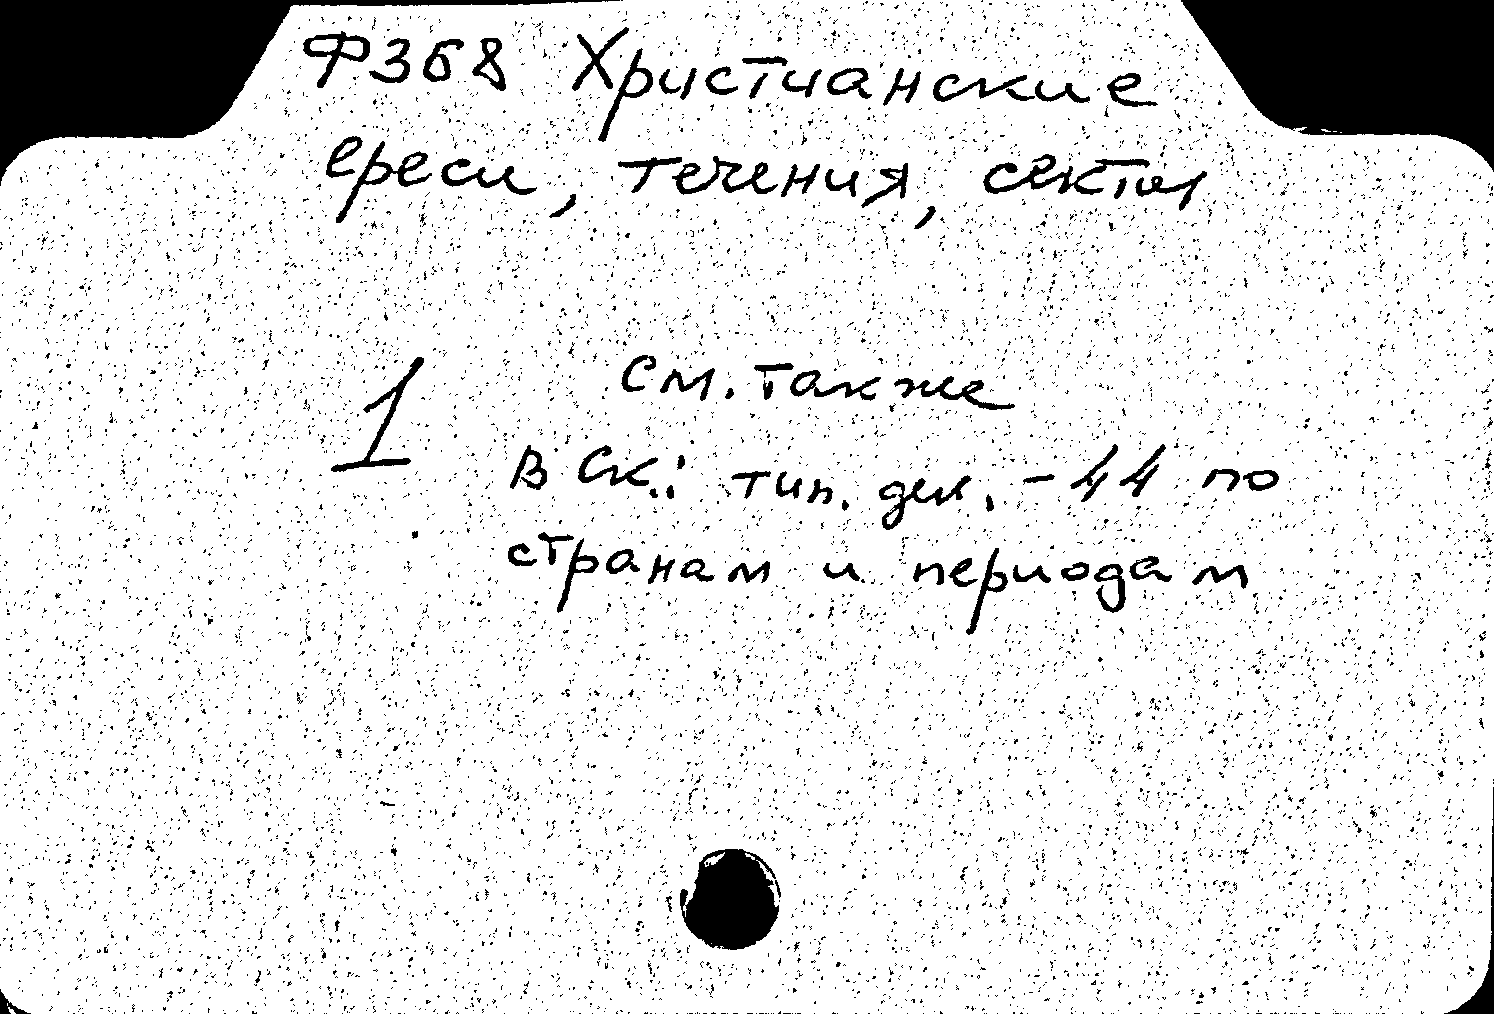 Ф368 Христианские
ереси, течения, секты
1 См. также
в Ск.: тип. дел. -44 по
странам и периодам